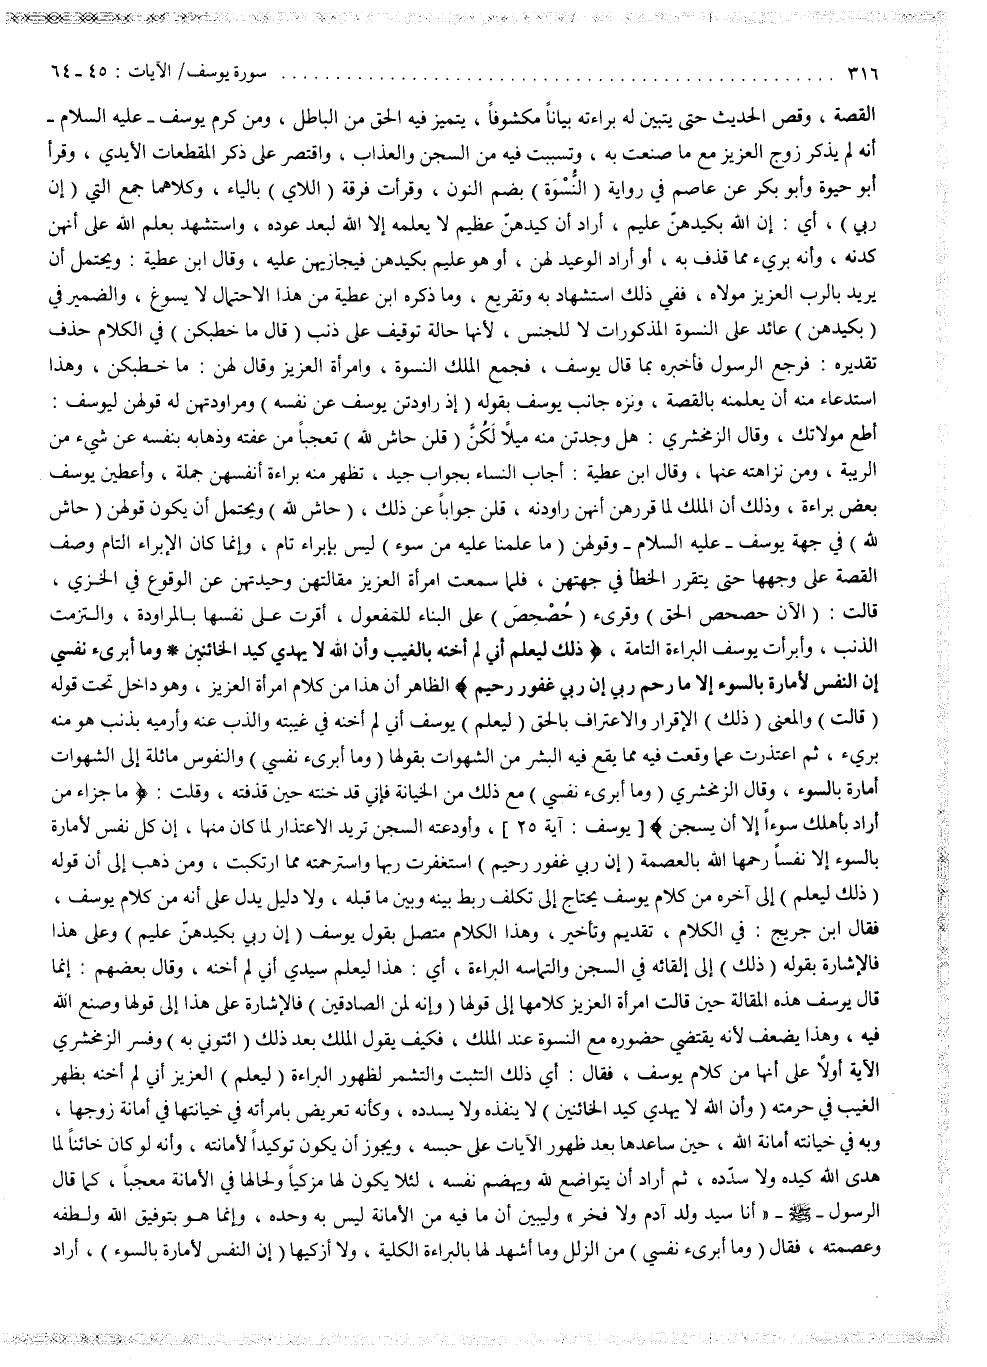 ٣١٦ ........................................................ سورة يوسف/ الآيات : ٤٥ ـ ٦٤
القصة ، وقص الحديث حتى يتبين له براءته بياناً مكشوفاً ، يتميز فيه الحق من الباطل ، ومن كرم يوسف ـ عليه السلام ـ
أنه لم يذكر زوج العزيز مع ما صنعت به ، وتسببت فيه من السجن والعذاب ، واقتصر على ذكر المقطعات الأيدي ، وقرأ
أبو حيوة وأبو بكر عن عاصم في رواية ( النُّسْوَة ) بضم النون ، وقرأت فرقة ( اللاي ) بالياء ، وكلاهما جمع التي ( إن
ربي ) ، أي : إن الله بكيدهنّ عليم ، أراد أن كيدهنّ عظيم لا يعلمه إلا الله لبعد عوده ، واستشهد بعلم الله على أنهن
كدنه ، وأنه بريء مما قذف به ، أو أراد الوعيد لهن ، أو هو عليم بكيدهن فيجازيهن عليه ، وقال ابن عطية : ويحتمل أن
يريد بالرب العزيز مولاه ، ففي ذلك استشهاد به وتقريع ، وما ذكره ابن عطية من هذا الاحتمال لا يسوغ ، والضمير في
( بكيدهن ) عائد على النسوة المذكورات لا للجنس ، لأنها حالة توقيف على ذنب ( قال ما خطبكن ) في الكلام حذف
تقديره : فرجع الرسول فأخبره بما قال يوسف ، فجمع الملك النسوة ، وامرأة العزيز وقال لهن : ما خـطبكن ، وهذا
استدعاء منه أن يعلمنه بالقصة ، ونزه جانب يوسف بقوله ( إذ راودتن يوسف عن نفسه ) ومراودتهن له قولهن ليوسف :
أطع مولاتك ، وقال الزمخشري : هل وجدتن منه ميلًا لَكُنَّ ( قلن حاش لله ) تعجباً من عفته وذهابه بنفسه عن شيء من
الريبة ، ومن نزاهته عنها ، وقال ابن عطية : أجاب النساء بجواب جيد ، تظهر منه براءة أنفسهن جملة ، وأعطين يوسف
بعض براءة ، وذلك أن الملك لما قررهن أنهن راودنه ، قلن جواباً عن ذلك ، ( حاش لله ) ويحتمل أن يكون قولهن ( حاش
لله ) في جهة يوسف ـ عليه السلام ـ وقولهن ( ما علمنا عليه من سوء ) ليس بإبراء تام ، وإنما كان الإبراء التام وصف
القصة على وجهها حتى يتقرر الخطأ في جهتهن ، فلما سمعت امرأة العزيز مقالتهن وحيدتهن عن الوقوع في الخـزي ،
قالت : ( الآن حصحص الحق ) وقرىء ( حُصْحِصَ ) على البناء للمفعول ، أقرت عـلى نفسها بـالمراودة ، والـتزمت
الذنب ، وأبرأت يوسف البراءة التامة ، ﴿ ذلك ليعلم أني لم أخنه بالغيب وأن الله لا يهدي كيد الخائنين * وما أبرىء نفسي
إن النفس لأمارة بالسوء إلا ما رحم ربي إن ربي غفور رحيم ﴾ الظاهر أن هذا من كلام امرأة العزيز ، وهو داخل تحت قوله
( قالت ) والمعنى ( ذلك ) الإقرار والاعتراف بالحق ( ليعلم ) يوسف أني لم أخنه في غيبته والذب عنه وأرميه بذنب هو منه
بريء ، ثم اعتذرت عما وقعت فيه مما يقع فيه البشر من الشهوات بقولها ( وما أبرىء نفسي ) والنفوس مائلة إلى الشهوات
أمارة بالسوء ، وقال الزمخشري ( وما أبرىء نفسي ) مع ذلك من الخيانة فإني قد خنته حين قذفته ، وقلت : ﴿ ما جزاء من
أراد بأهلك سوءاً إلا أن يسجن ﴾ [ يوسف : آية ٢٥ ] ، وأودعته السجن تريد الاعتذار لما كان منها ، إن كل نفس لأمارة
بالسوء إلا نفساً رحمها الله بالعصمة ( إن ربي غفور رحيم ) استغفرت ربها واسترحمته مما ارتكبت ، ومن ذهب إلى أن قوله
( ذلك ليعلم ) إلى آخره من كلام يوسف يحتاج إلى تكلف ربط بينه وبين ما قبله ، ولا دليل يدل على أنه من كلام يوسف ،
فقال ابن جريج : في الكلام ، تقديم وتأخير ، وهذا الكلام متصل بقول يوسف ( إن ربي بكيدهنّ عليم ) وعلى هذا
فالإشارة بقوله ( ذلك ) إلى إلقائه في السجن والتماسه البراءة ، أي : هذا ليعلم سيدي أني لم أخنه ، وقال بعضهم : إنما
قال يوسف هذه المقالة حين قالت امرأة العزيز كلامها إلى قولها ( وإنه لمن الصادقين ) فالإشارة على هذا إلى قولها وصنع الله
فيه ، وهذا يضعف لأنه يقتضي حضوره مع النسوة عند الملك ، فكيف يقول الملك بعد ذلك ( ائتوني به ) وفسر الزمخشري
الآية أولًا على أنها من كلام يوسف ، فقال : أي ذلك التثبت والتشمر لظهور البراءة ( ليعلم ) العزيز أني لم أخنه بظهر
الغيب في حرمته ( وأن الله لا يهدي كيد الخائنين ) لا ينفذه ولا يسدده ، وكأنه تعريض بامرأته في خيانتها في أمانة زوجها ،
وبه في خيانته أمانة الله ، حين ساعدها بعد ظهور الآيات على حبسه ، ويجوز أن يكون توكيداً لأمانته ، وأنه لو كان خائناً لما
هدى الله كيده ولا سدّده ، ثم أراد أن يتواضع لله ويهضم نفسه ، لئلا يكون لها مزكياً ولحالها في الأمانة معجباً ، كما قال
الرسول ـ ﷺ ـ « أنا سيد ولد آدم ولا فخر » وليبين أن ما فيه من الأمانة ليس به وحده ، وإنما هـو بتوفيق الله ولـطفه
وعصمته ، فقال ( وما أبرىء نفسي ) من الزلل وما أشهد لها بالبراءة الكلية ، ولا أزكيها ( إن النفس لأمارة بالسوء ) ، أراد